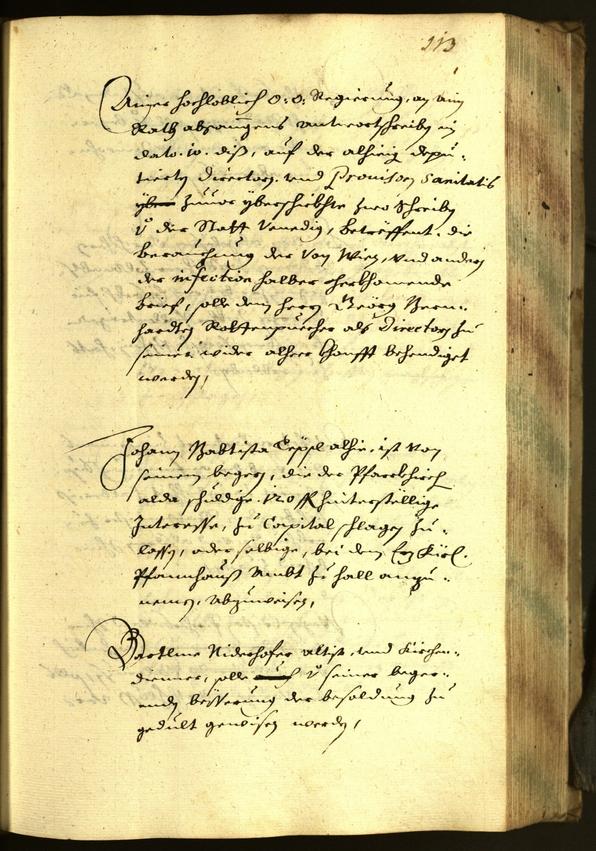 113
Ainer hochloblich O: Ö: Regierung, an ain
Rath abgangens Antwortschreiben in
dato. 10. diß, auf der alhieig depu¬
tierten Directorn. und Provisorn Sanitatis
zuuor yberschickhte zwo Schreiben
der Statt Venedig, betreffent. die
beraichung der von Wien, und andern
der infection halber herkhomende
brief, solle dem herrn Geörg Bern¬
hardten Rottenpuecher als Directorn zu
seiner wider alheer khonfft behendiget
werden,
Johann Babtista Zëppl alhie, ist von
seinem begern, die der Pfarrkhirch
alda schuldige. 120 fl hinterstellige
Interesse, zu Capital schlagen zu¬
lassen, oder selbige, bei dem
Pfannhauß Ambt zu hall anzu¬
nemen, abzuweisen,
Bartlme Niderhofer altist, und Kirchen¬
diener, solle seiner beger¬
enden bösserung der besoldung zu
gedult gewisen werden,